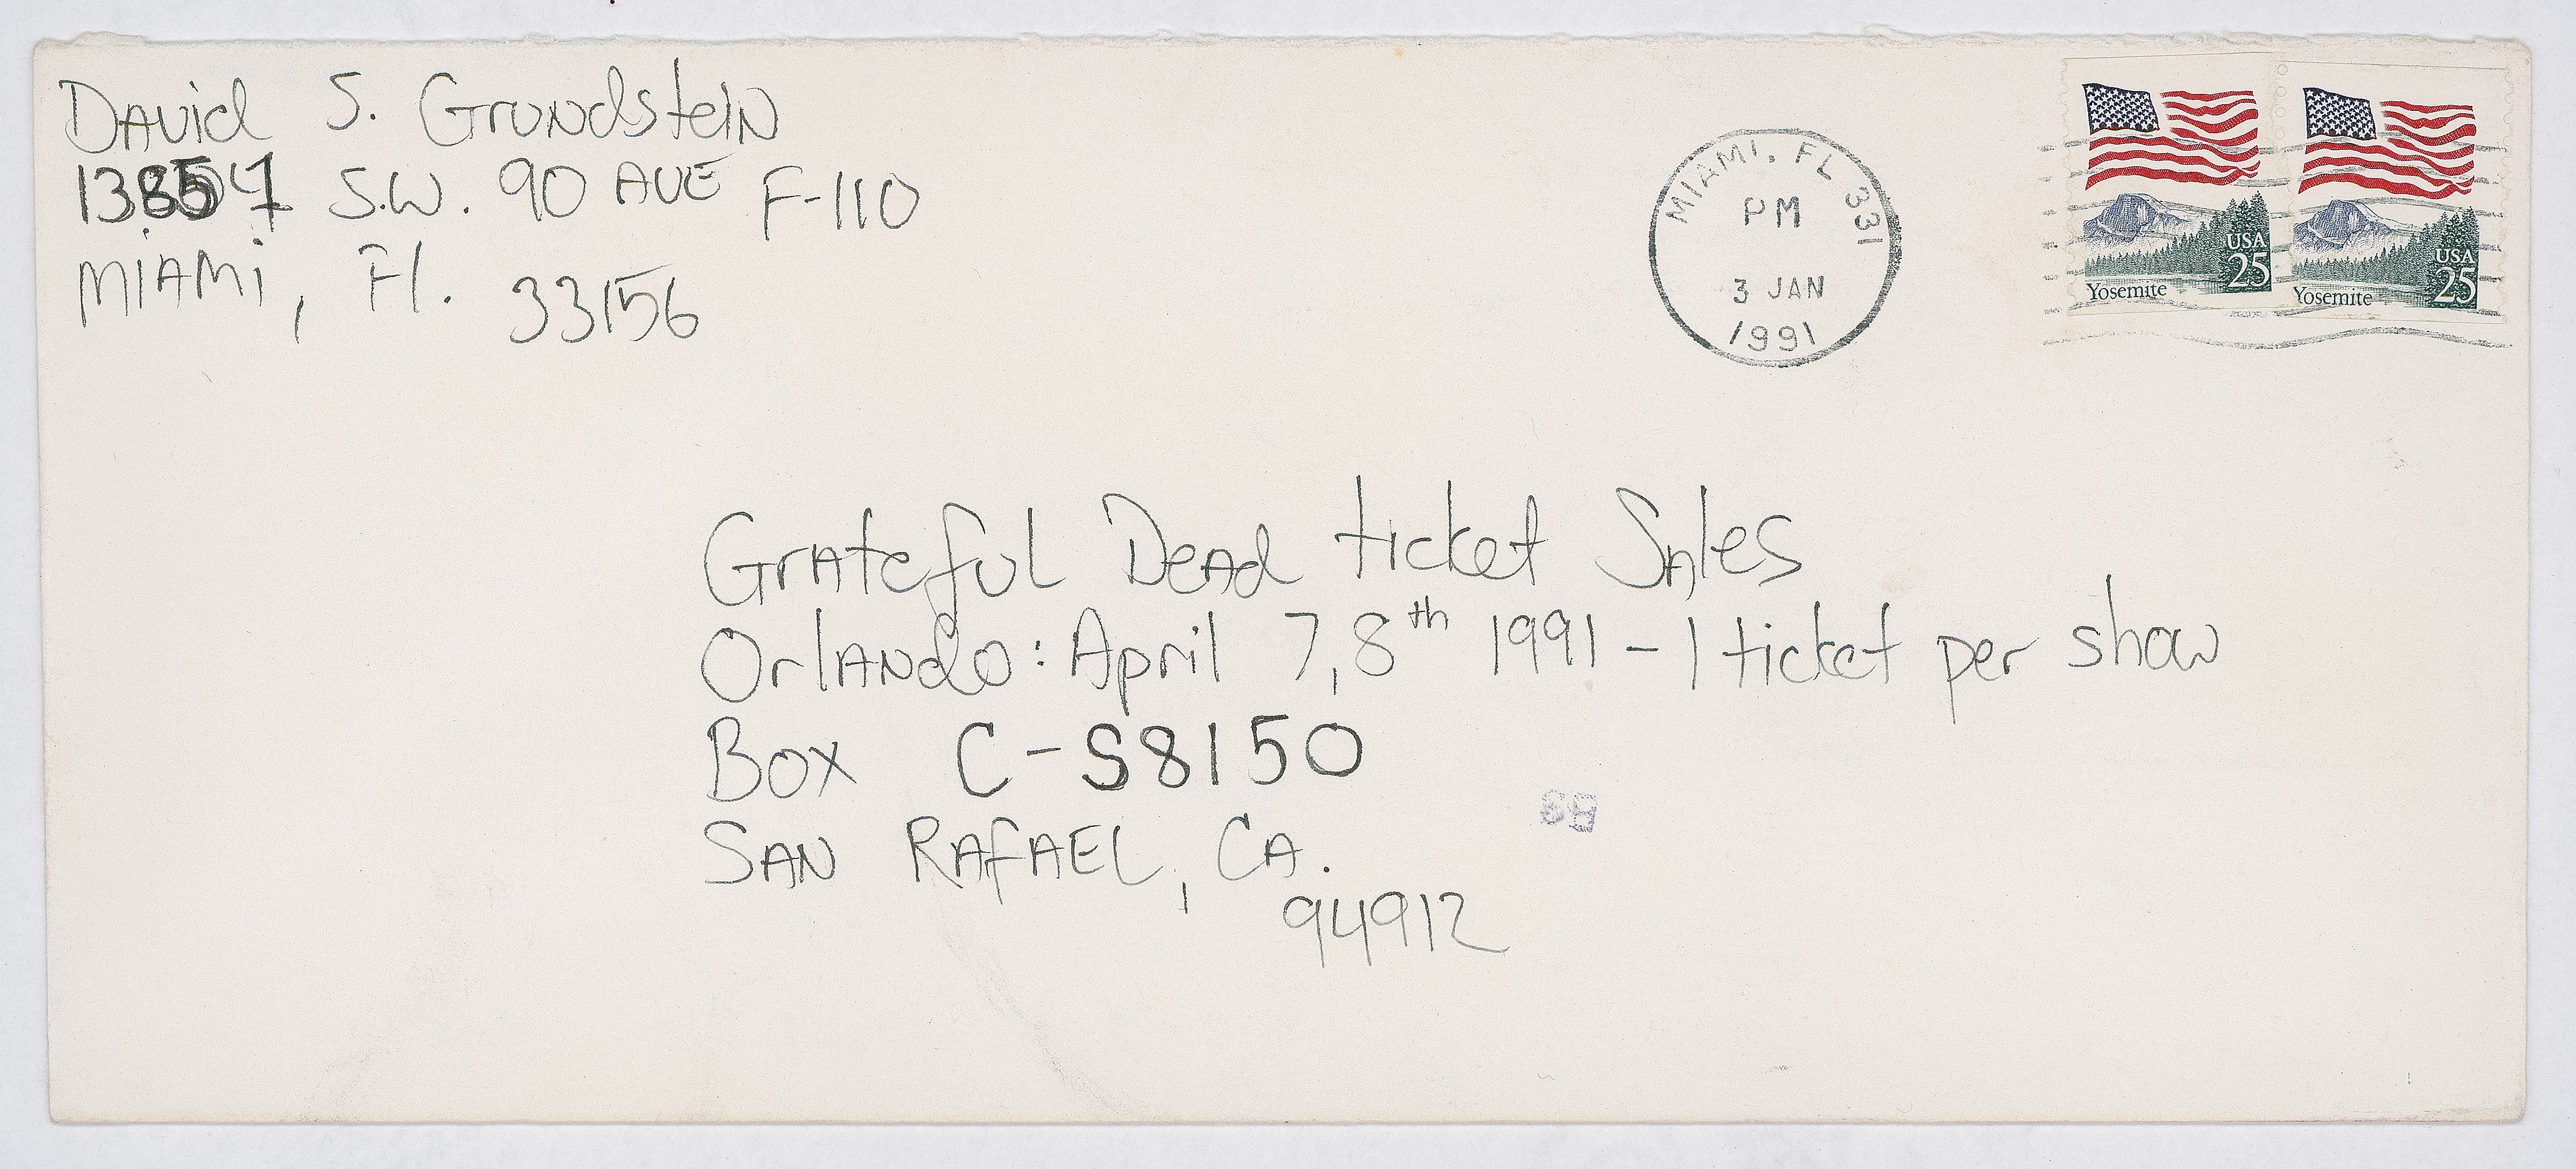 David S. Grundstein
S.W. 90 AVE F-110
MIAMI, Fl. 33156
MIAMI, FL 331
PM
3 JAN
1991
USA
25
Yosemite
USA
25
Yosemite
Grateful Dead ticket Sales
Orlando: April 7,8th 1991 - 1 ticket per show
Box C-S8150
SAN RAFAEL, CA.
94912